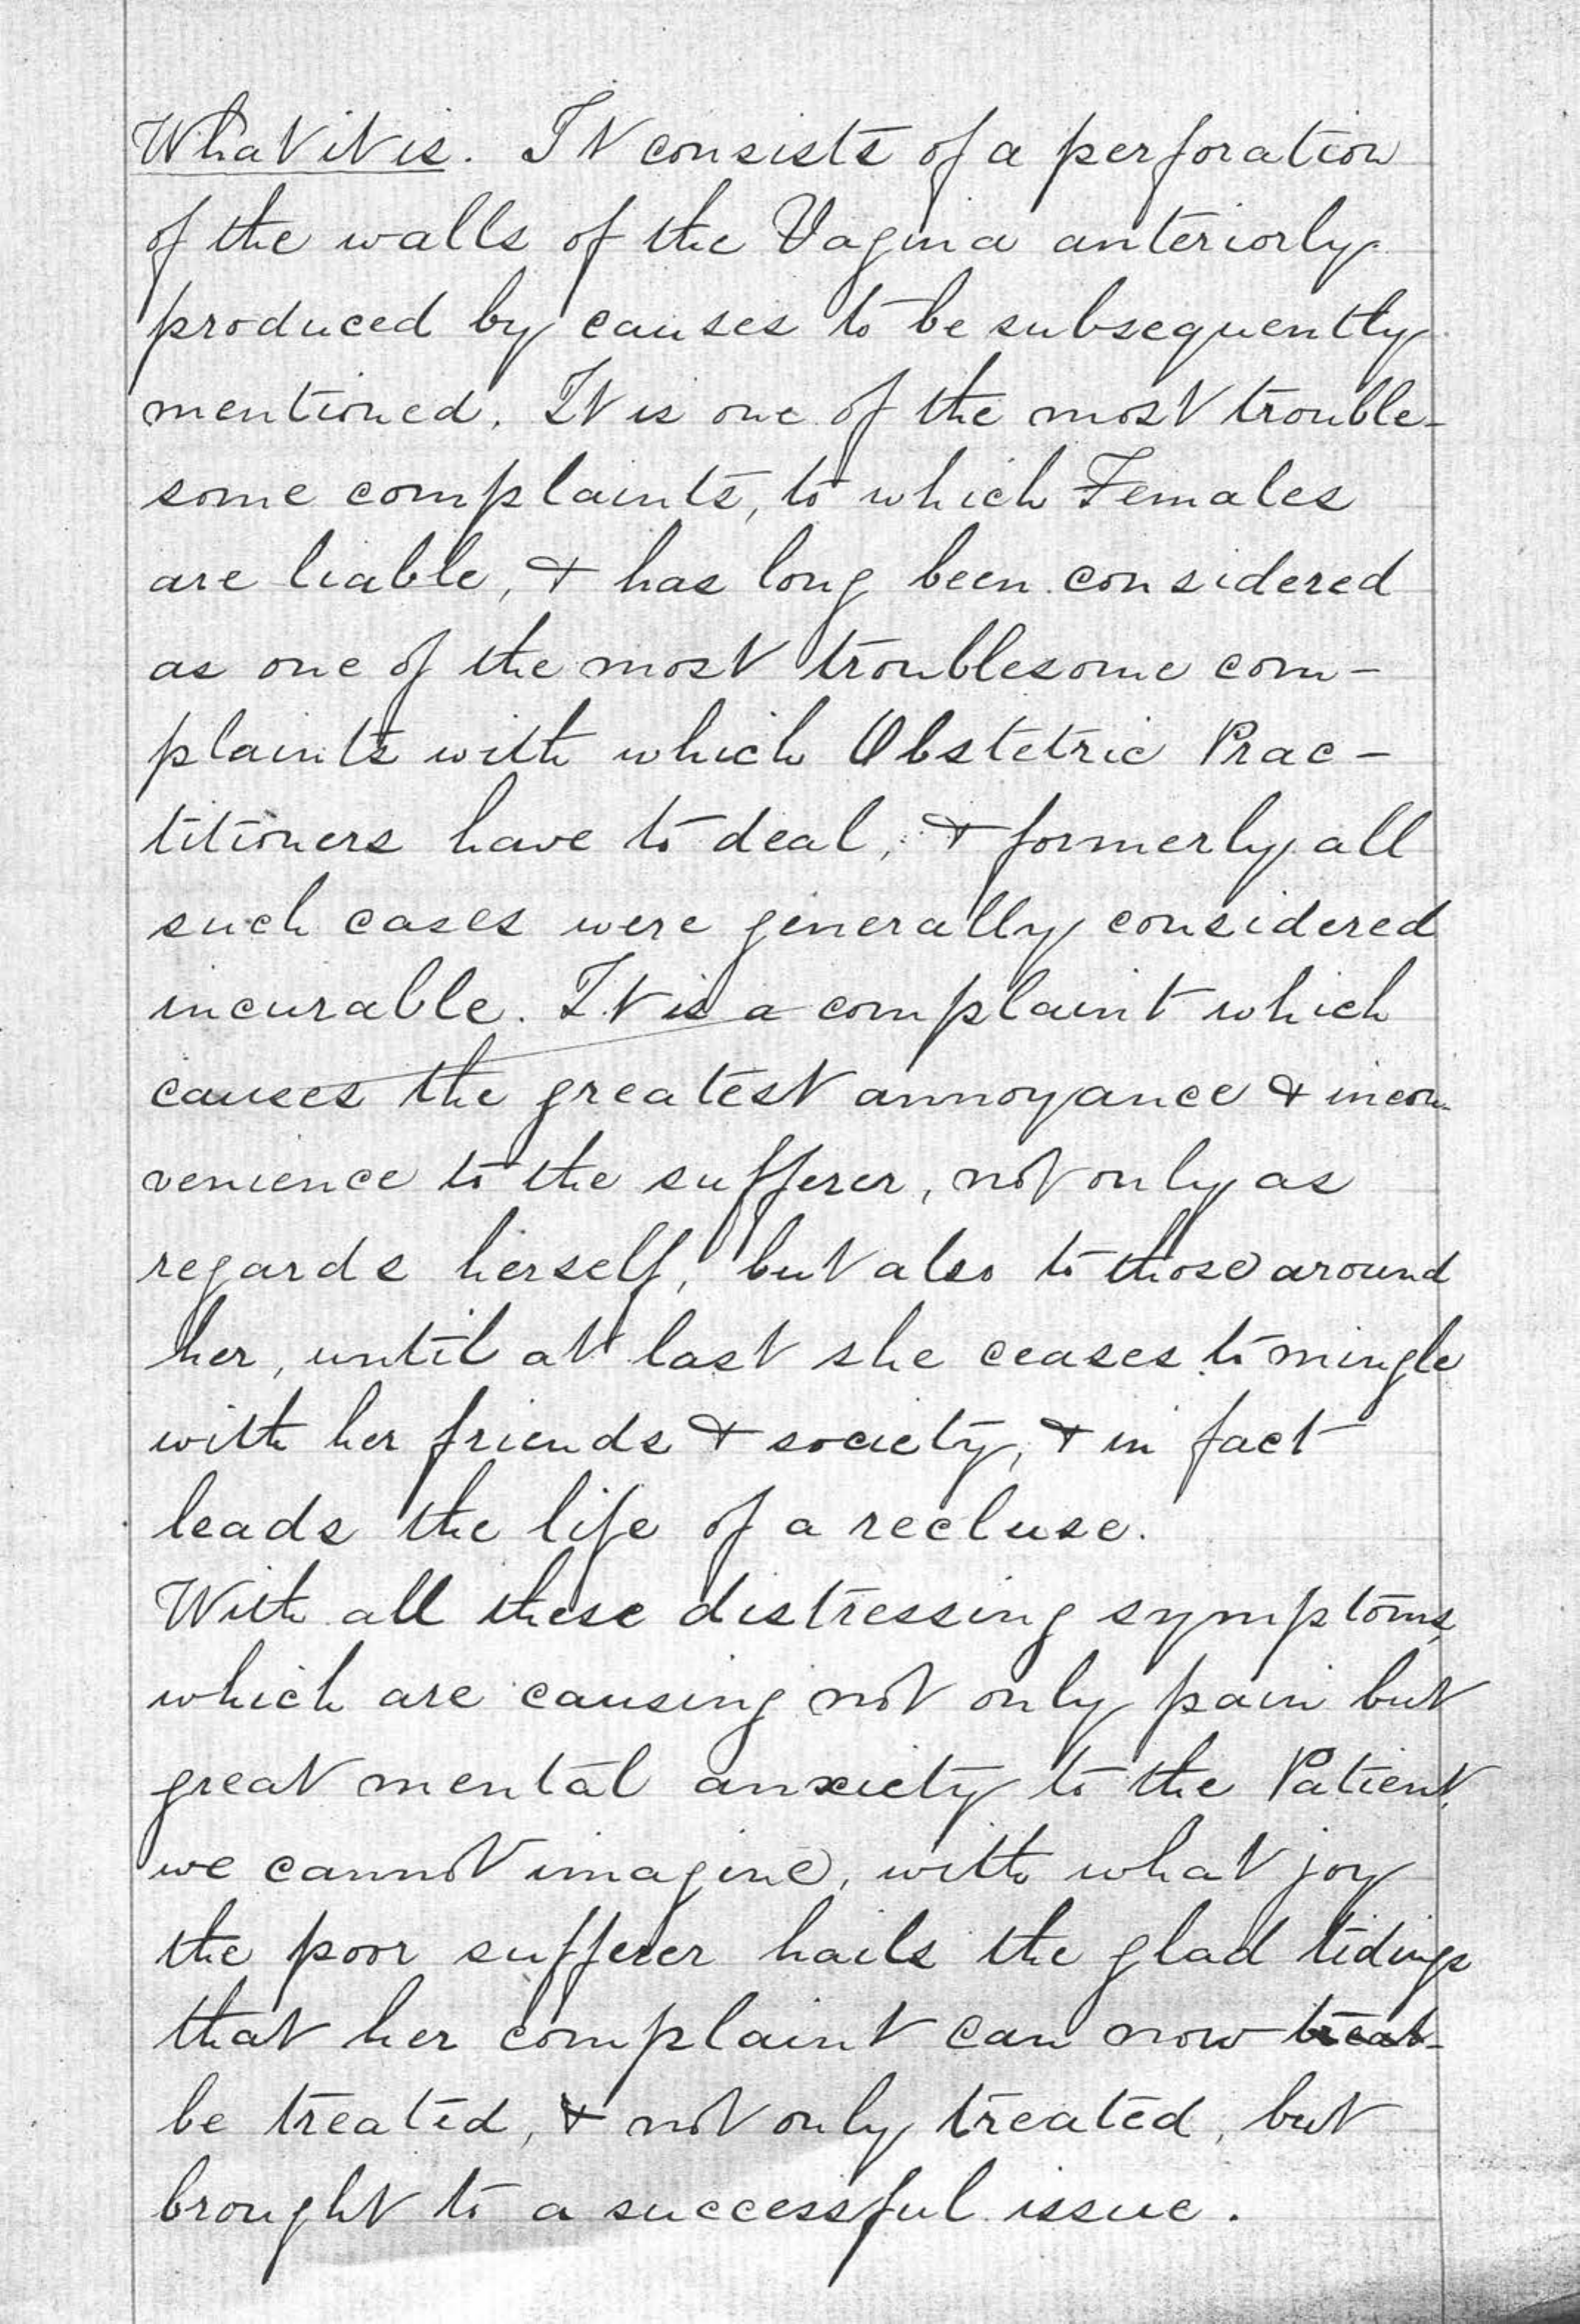 What it is. It consists of a perforation
of the walls of the Vagina anteriorly
produced by causes to be subsequently
mentioned. It is one of the most trouble-
some complaints, to which Females
are liable, & has long been considered
as one of the most troublesome com-
plaints with which Obstetric Prac-
titioners have to deal, & formerly all
such cases were generally considered
incurable. It is a complaint which
causes the greatest annoyance & incon-
venience to the sufferer, not only as
regards herself, but also to those around
her, until at last she ceases to mingle
with her friends & society, & in fact
leads the life of a recluse.
With all these distressing symptoms,
which are causing not only pain but
great mental anxiety to the Patient,
we cannot imagine, with what joy
the poor sufferer hails the glad tidings
that her complaint can now treat-
be treated, & not only treated, but
brought to a successful issue.